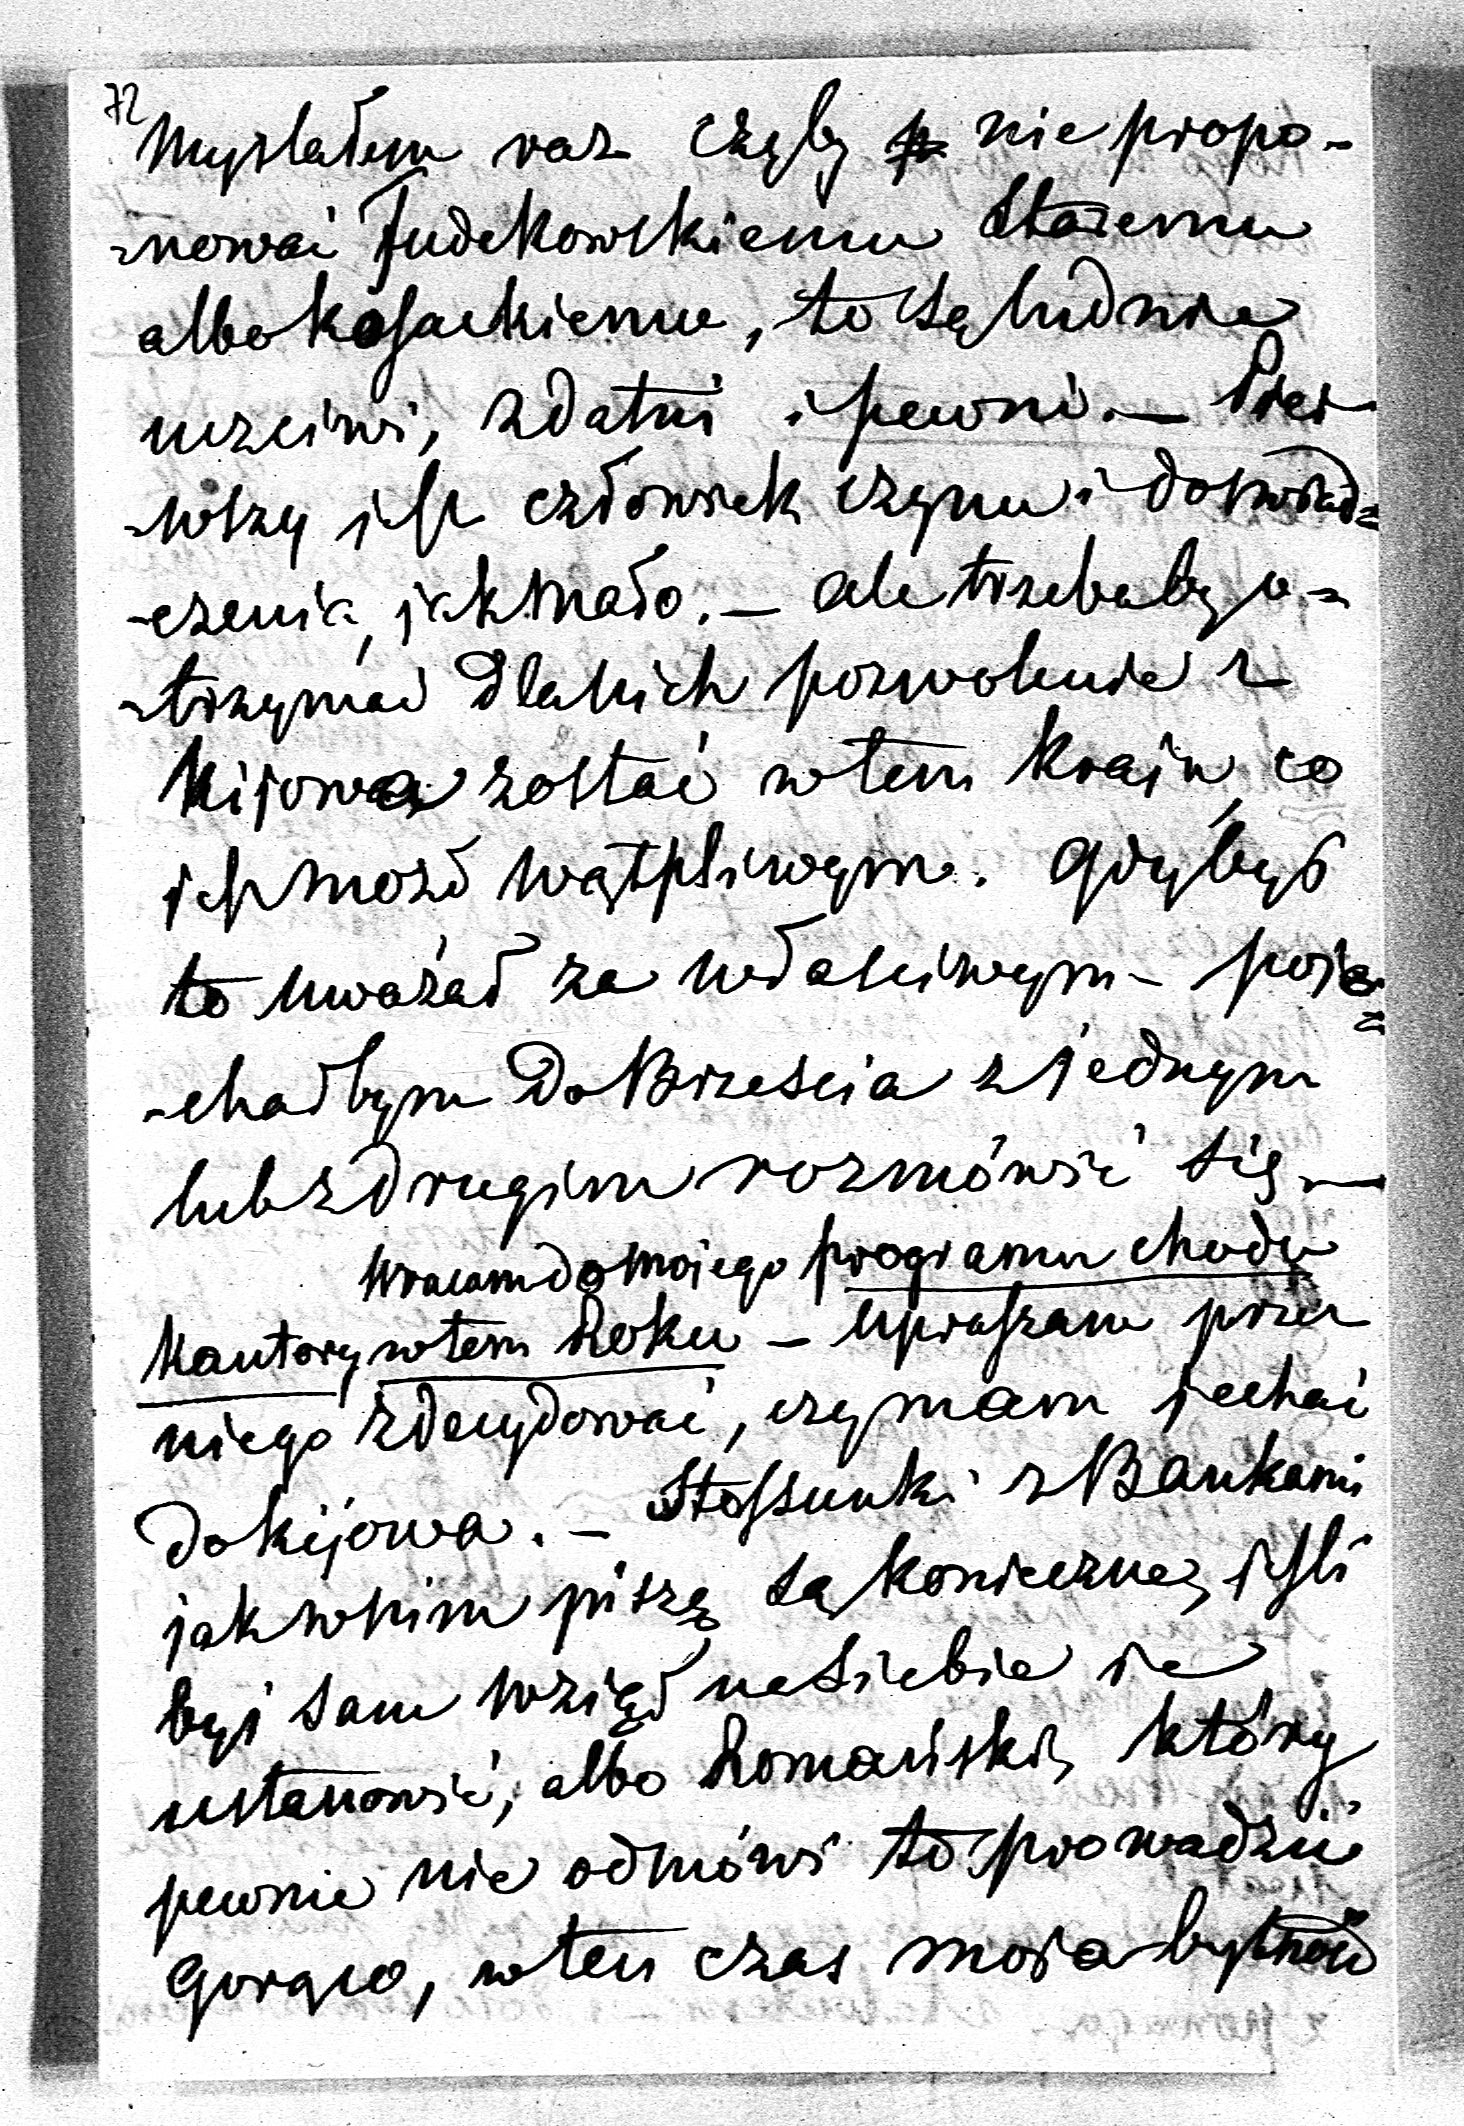 72
Myslałem raz czyby nie propo-
-nować Fudakowskiemu Staremu
albo Kossackiemu, to są ludzie
uczciwi, zdatni i pewni. — Pier
-wszy jest człowiek czynu i doswiad-
-czenia, jak mało. — ale trzebaby o-
-trzymać dla nich pozwolenie z
Kijowa zostać w tem kraju, co
jest może wątpliwym. Gdybyś
to uważał za właściwym - poje-
-chałbym do Brześcia z jednym
lub z drugim rozmówić się —
Wracam do mojego programu chodu
Kantory w tem Roku — Upraszam przez
niego zdecydować, czy mam jechać
do Kijowa. — Stossunki z Bankami
jak w nim piszę są konieczne, jesli
byś sam wziął na siebie je
ustanowić, albo Romański, który
pewnie nie odmówi to prowadzić
gorąco, w ten czas moja bytność